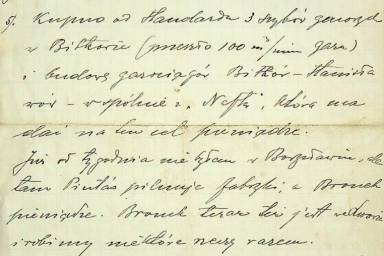 5/. Kupno od Standarda 3 szybów
w Bitkowie (przeszło 100 m³/min gazu)
i budowę Bitków - Stanisła
wów - wspólnie z „Naftą", która ma
dać na ten cel pieniądze.
Już od tygodnia nie byłem w, ale
tam Pintás pilnuje fabryki, a Bronek
pieniądze. Bronek teraz też jest we Lwowie
i robimy niektóre rzeczy razem.